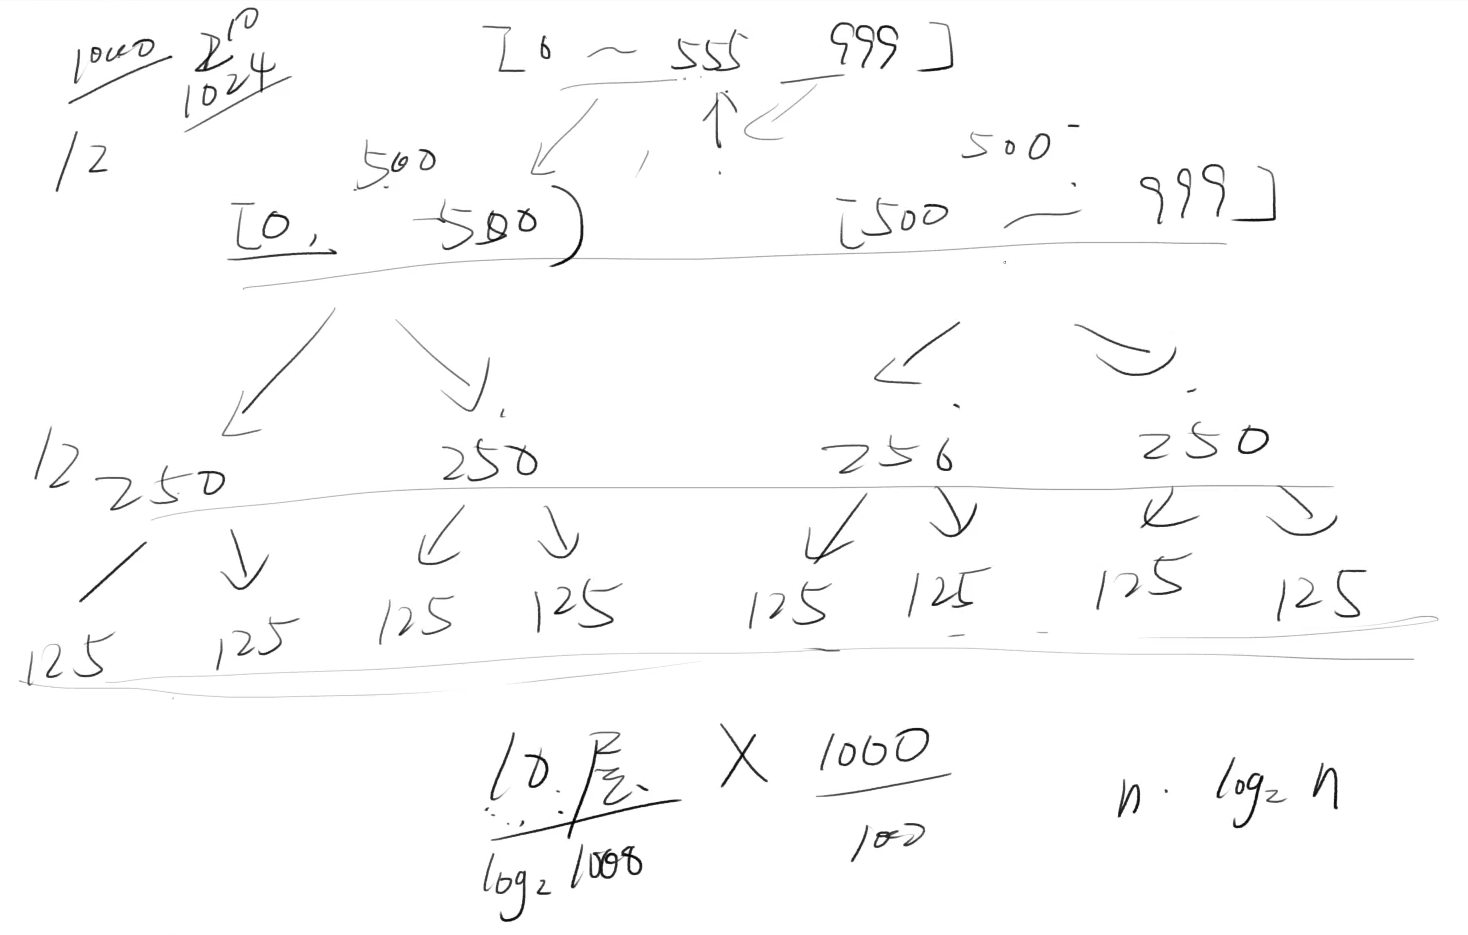 1000 2^10
1024
[0 ~ 555 999]
/2
500 500
[0, 500) [500 ~ 999]
/2 250 250 250 250
125 125 125 125 125 125 125 125
10层 × 1000 n · log₂ n
log₂ 1000 1000